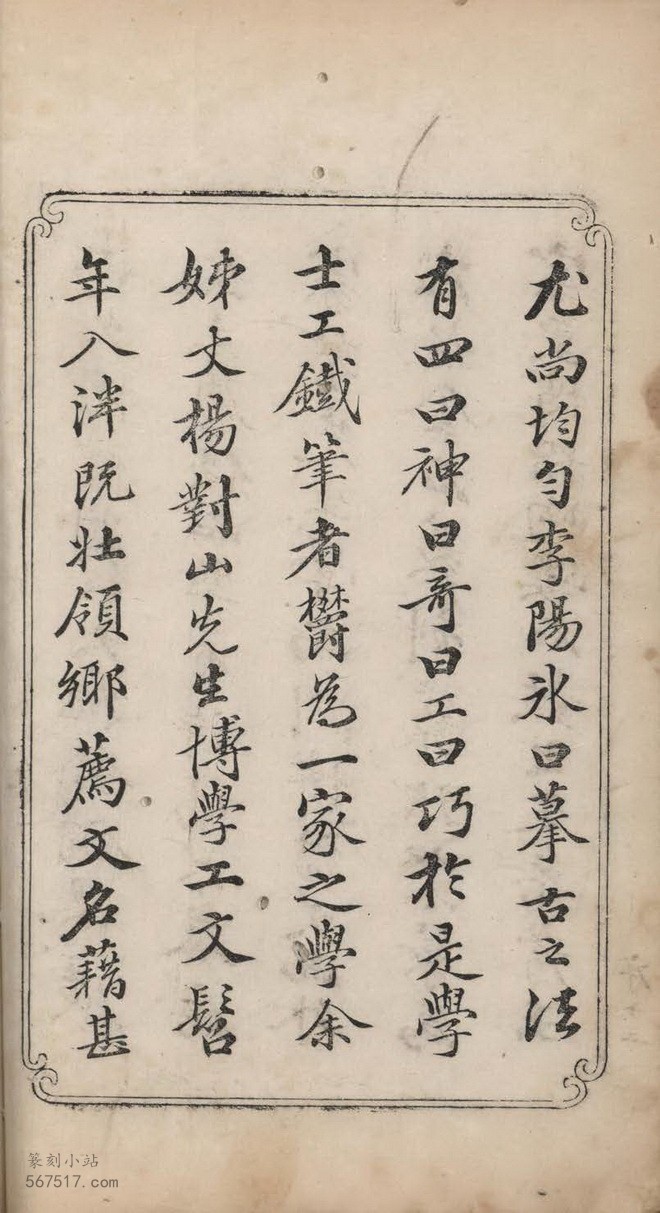 尤尚均勻李陽冰曰摹古之法
有四曰神曰奇曰工曰巧於是學
士工鐵筆者欝為一家之學余
姊丈楊對山先生博學工文髫
年入泮既壯領鄉薦文名藉甚
篆刻小站
567517.com